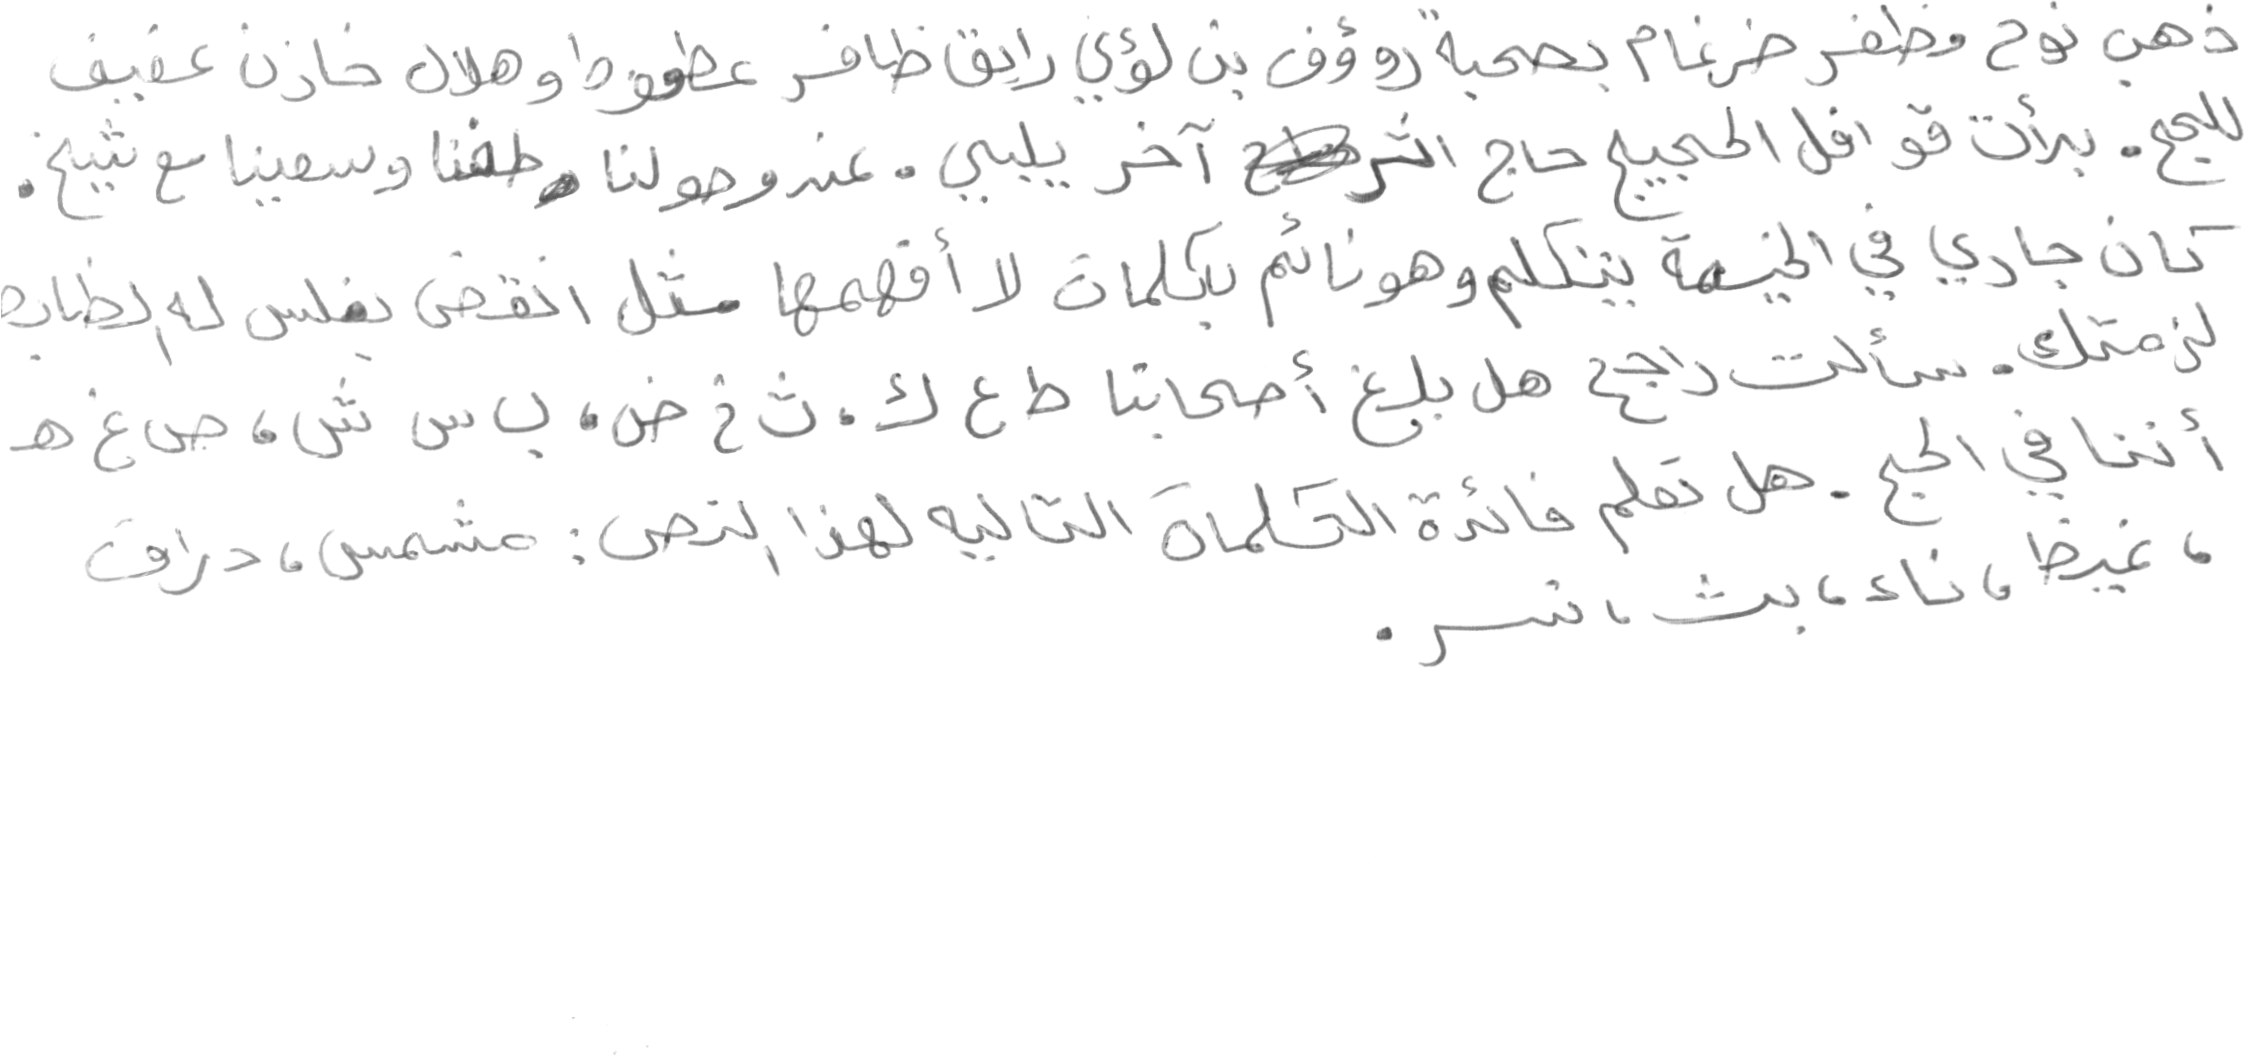 ذهب نوح مظفر ضرغام بصحبة رؤوف بن لؤي رايق ظافر عطعوط وهلال خازن عفيف
للحج. بدأت قوافل الحجيج حاج اثر آخر يلبي. عند وصولنا طفنا وسعينا مع شيخ.
كان جاري في الخيمة يتكلم وهو نائم بكلمات لا أفهمها مثل انقض بغلس له لظابه
لزمتك. سألت راجح هل بلغ أصحابنا ط ع ك، ث خ ض، ب س ش، ص غ هـ
أننا في الحج. هل تعلم فائدة الكلمات التاليه لهذا النص: مشمس، دراق
، غيظ، ناء، بث، نسر.